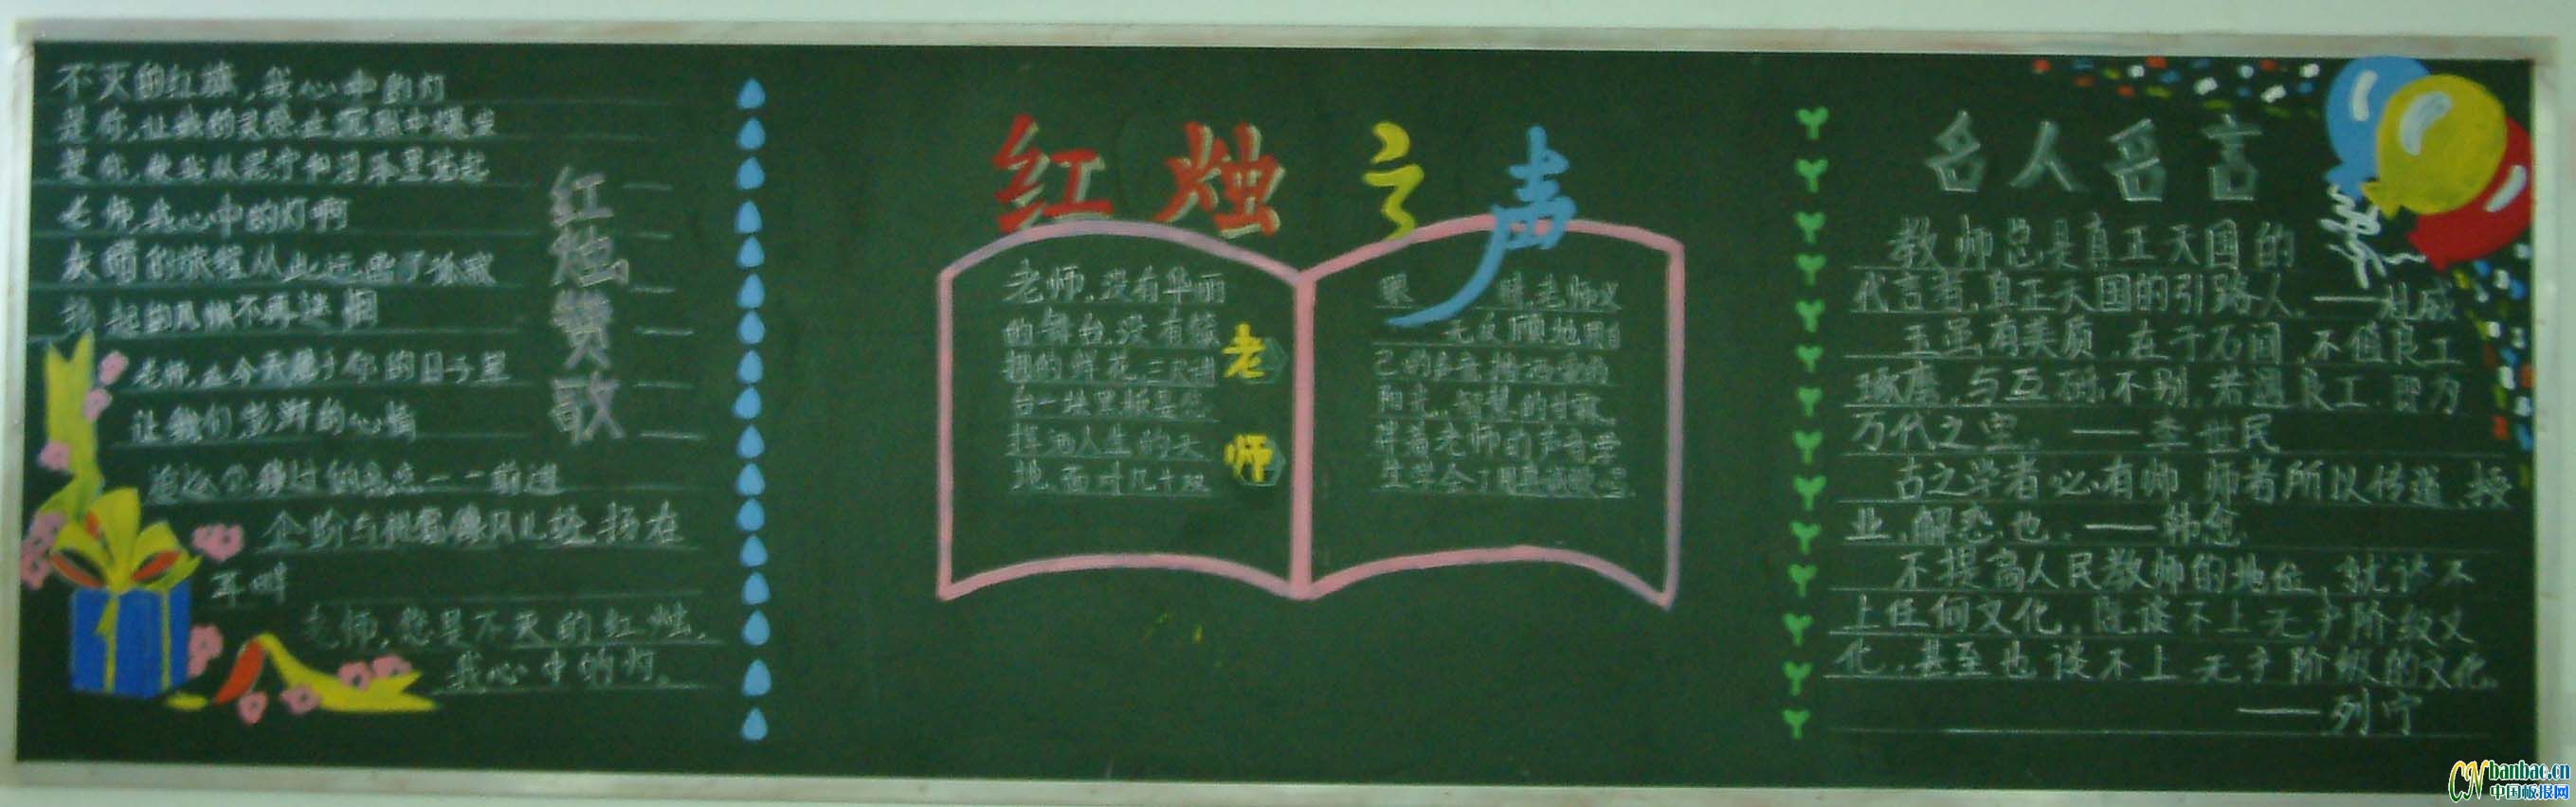 不灭的红旗，我心中的灯
是你，让我的灵感在沉默中爆发
是你，使我从泥泞和沼泽里站起
老师我心中的灯啊
灰暗的旅程从此远离了
扬起的风帆不再迷惘
老师，在今天属于你的日子里
让我们澎湃的心情
前进
在
耳畔
老师，您是不灭的红烛，
我心中的灯。
红烛赞歌
红烛之声
老师，没有华丽
的舞台，没有簇
拥的鲜花，三尺讲
台一块黑板是您
挥洒人生的天
地，面对几十双
老师
眼睛老师义
无反顾地用自
己的
阳光，智慧的甘露，
伴着老师的声音学
生学会了
名人名言
教师总是真正天国的
代言者，真正天国的引路人。——杜威
玉虽有美质，在于石间，不值良工
琢磨，与瓦砾不别，若遇良工，即为
万代之宝。——李世民
古之学者必有师，师者所以传道、授
业、解惑也。——韩愈
不提高人民教师的地位，就谈不
上任何文化，既谈不上无产阶级文
化，甚至也谈不上无产阶级的文化。
——列宁
CN banbao.cn
中国板报网